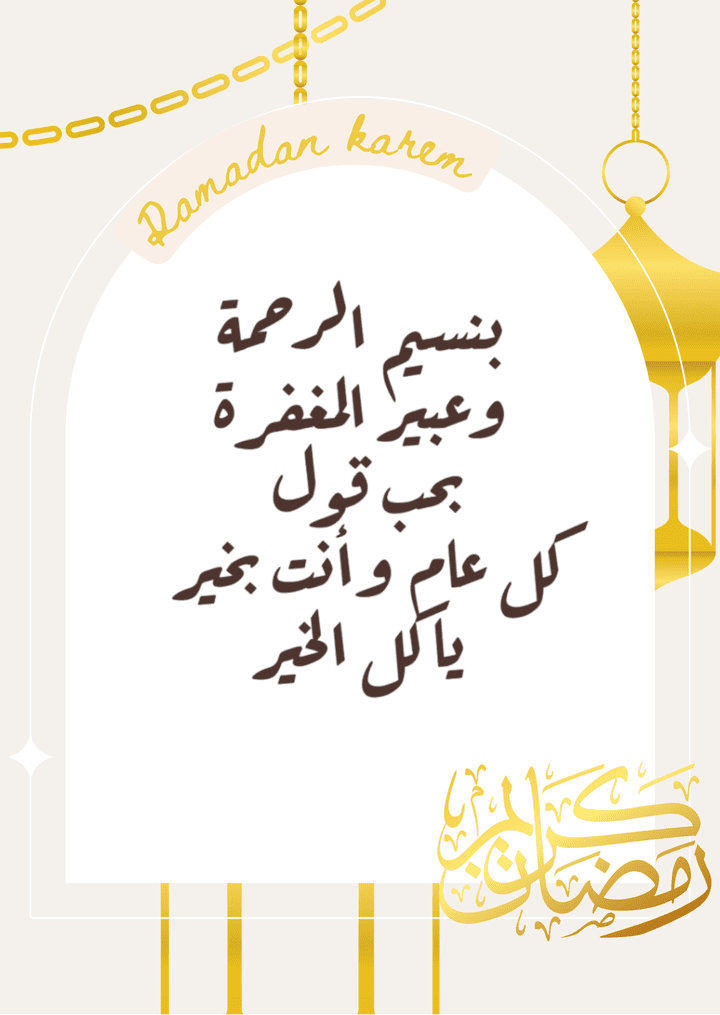 Ramadan karem
بنسيم الرحمة
وعبير المغفرة
بحب قول
كل عام وأنت بخير
ياكل الخير
رمضان كريم